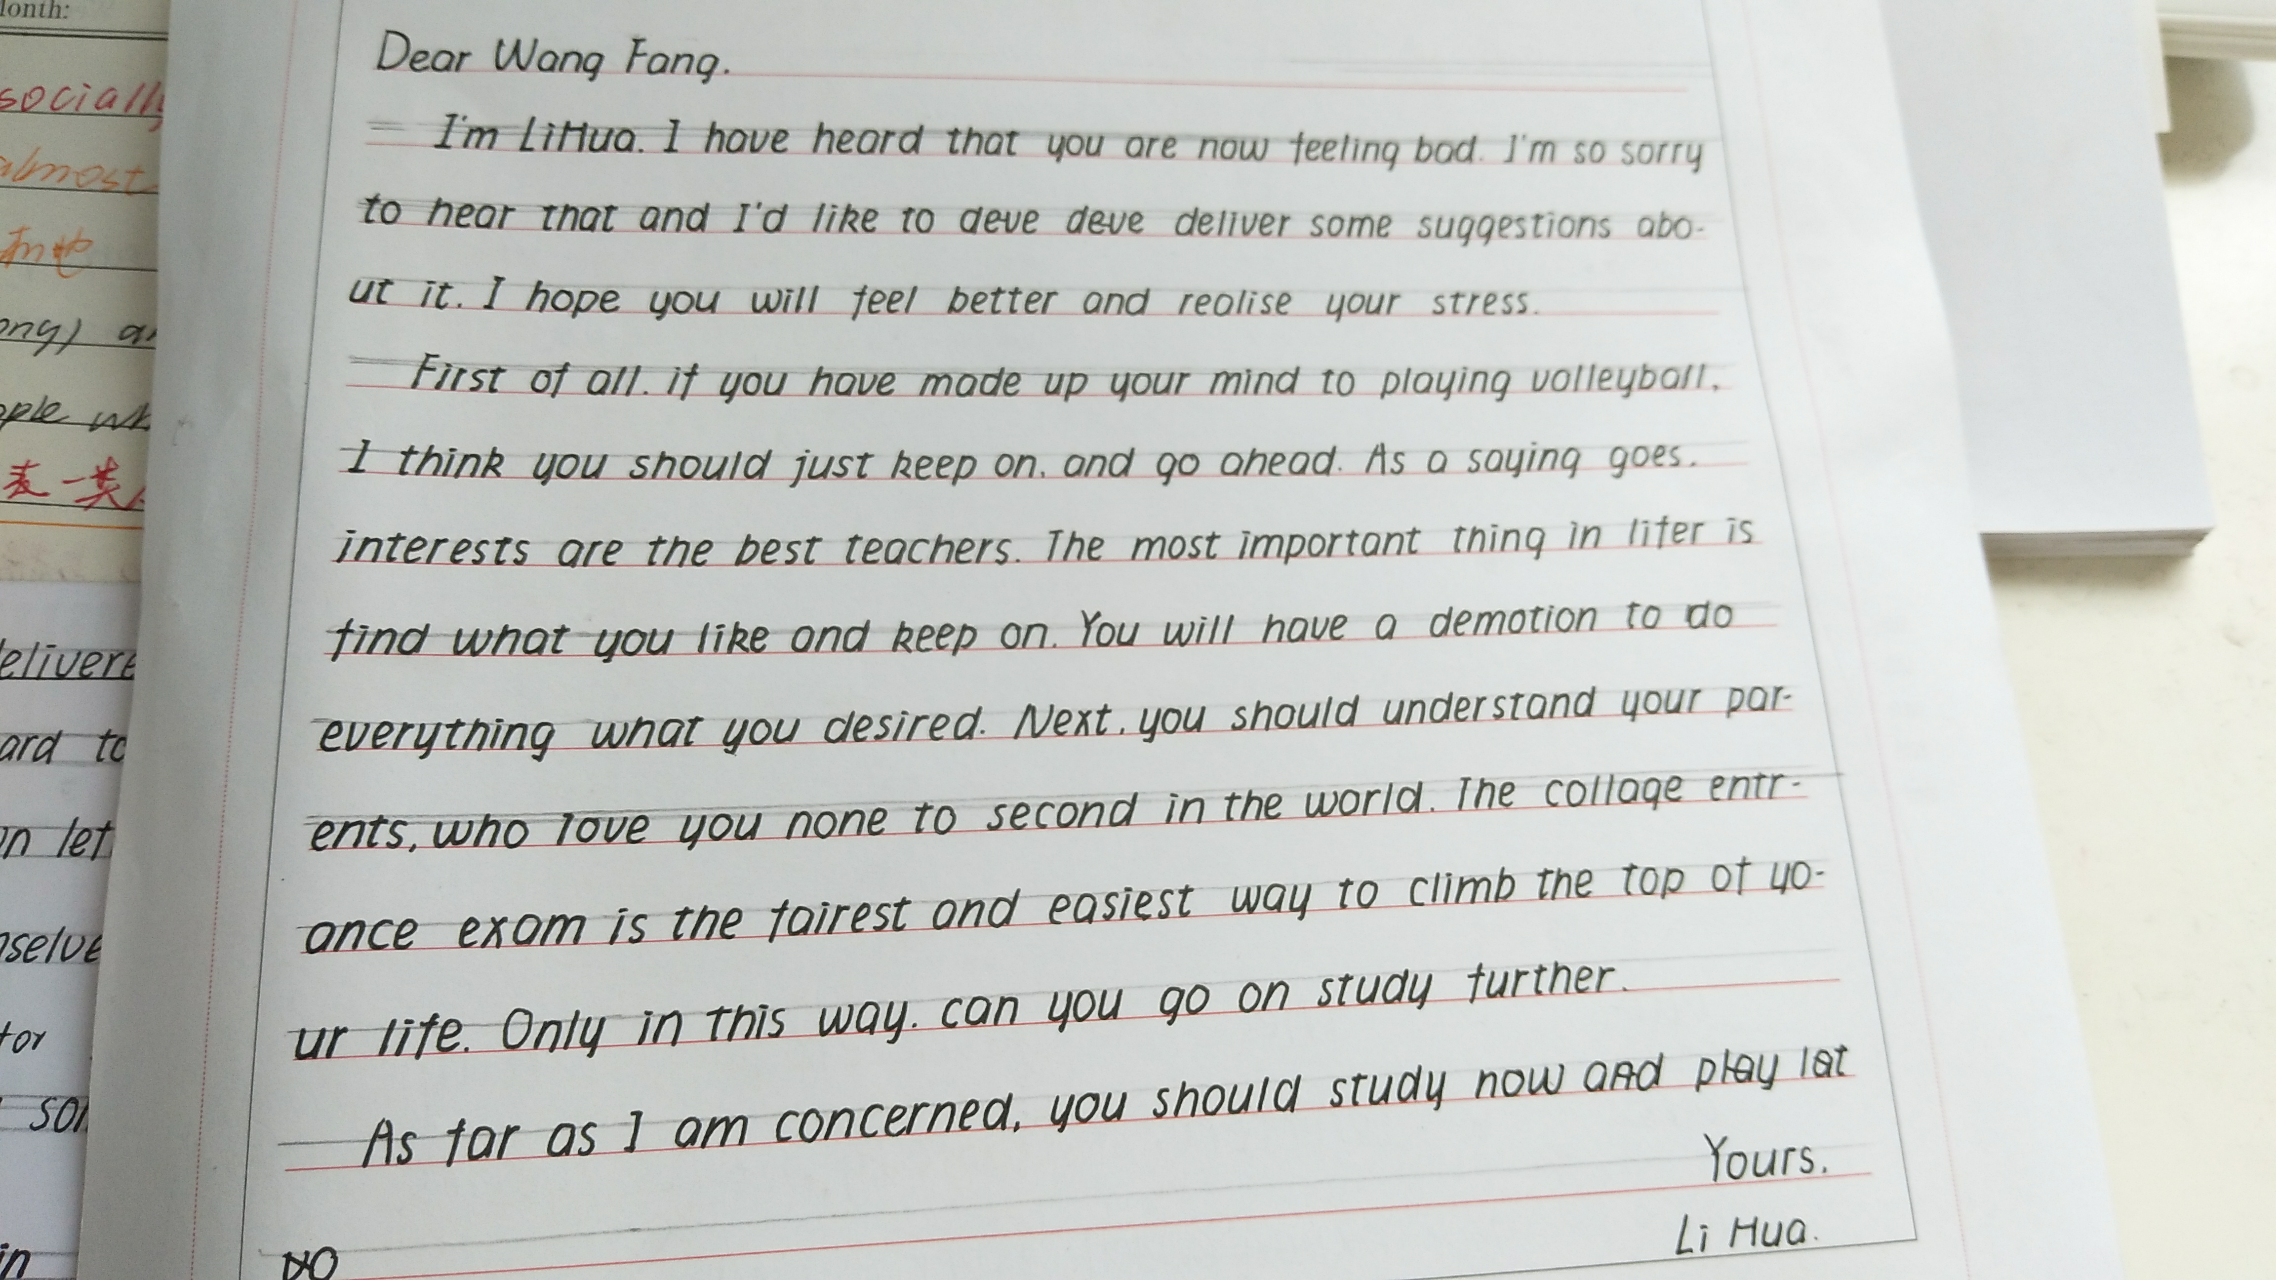 Month:
socially
almost
和他
ong) an
ople wh
表一类人
delivere
ard to
in let
nselve
for
son
in
Dear Wang Fang.
I'm LiHua. I have heard that you are now feeling bad. I'm so sorry
to hear that and I'd like to deve deve deliver some suggestions abo-
ut it. I hope you will feel better and realise your stress.
First of all. if you have made up your mind to playing volleyball,
I think you should just keep on. and go ahead. As a saying goes.
interests are the best teachers. The most important thing in lifer is
find what you like and keep on. You will have a demotion to do
everything what you desired. Next. you should understand your par-
ents, who love you none to second in the world. The collage entr-
ance exam is the fairest and easiest way to climb the top of yo-
ur life. Only in this way. can you go on study further.
As far as I am concerned, you should study now and play lat
Yours.
Li Hua.
NO